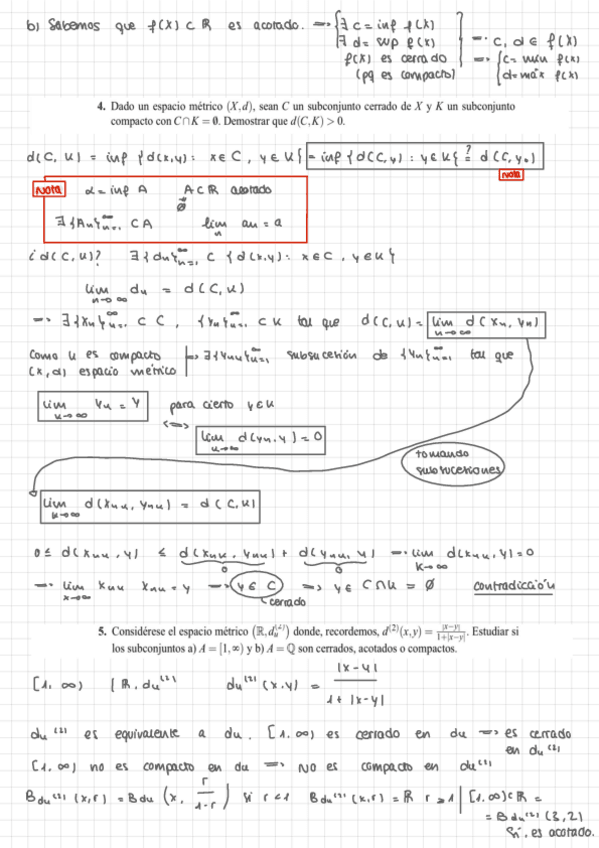 b) Sabemos que f(X) ⊂ ℝ es acotado. => { ∃ c = inf f(X)
∃ d = sup f(X)
f(X) es cerrado
(pq es compacto) } => c, d ∈ f(X)
=> { c = mín f(X)
d = máx f(X)
4. Dado un espacio métrico (X,d), sean C un subconjunto cerrado de X y K un subconjunto
compacto con C∩K = ∅. Demostrar que d(C,K) > 0.
d(C, K) = inf {d(x,y) : x ∈ C, y ∈ K} = inf {d(C,y) : y ∈ K} ?= d(C, y₀)
Nota
Nota α = inf A A ⊂ ℝ acotado
≠ ∅
∃ {An}_{n=1}^∞ ⊂ A lim_n an = a
¿ d(C, K)? ∃ {dn}_{n=1}^∞ ⊂ {d(x,y) : x ∈ C, y ∈ K}
lim_{n→∞} dn = d(C, K)
=> ∃ {Xn}_{n=1}^∞ ⊂ C, {Yn}_{n=1}^∞ ⊂ K tal que d(C,K) = lim_{n→∞} d(Xn, Yn)
Como K es compacto
(X, d) espacio métrico => ∃ {Ynk}_{k=1}^∞ subsucesión de {Yn}_{n=1}^∞ tal que
lim_{k→∞} Yk = Y para cierto y ∈ K
<=> lim_{k→∞} d(yn, y) = 0
tomando
subsucesiones
lim_{k→∞} d(Xnk, Ynk) = d(C, K)
0 ≤ d(Xnk, y) ≤ d(Xnk, Ynk) + d(Ynk, y) => lim_{k→∞} d(Xnk, y) = 0
0 0
=> lim_{x→∞} Xnk Xnk = y => y ∈ C => y ∈ C∩K = ∅ contradicción
cerrado
5. Considérese el espacio métrico (ℝ, d_u^{(2)}) donde, recordemos, d^{(2)}(x,y) = |x−y| / (1+|x−y|). Estudiar si
los subconjuntos a) A = [1,∞) y b) A = ℚ son cerrados, acotados o compactos.
[1, ∞) (ℝ, du⁽²⁾ du⁽²⁾ (x,y) = |x−y| / (1 + |x−y|)
du⁽²⁾ es equivalente a du. [1, ∞) es cerrado en du => es cerrado
en du⁽²⁾
[1, ∞) no es compacto en du => No es compacto en du⁽²⁾
B du⁽²⁾ (x,r) = B du (x, r / (1−r)) si r < 1 B du⁽²⁾ (x,r) = ℝ r ≥ 1 | [1, ∞) ⊂ ℝ =
= B du⁽²⁾ (3, 2)
Sí, es acotado.